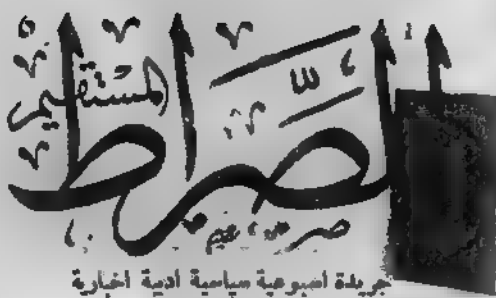 الصراط
المستقيم
جريدة اسبوعية سياسية أدبية اخبارية